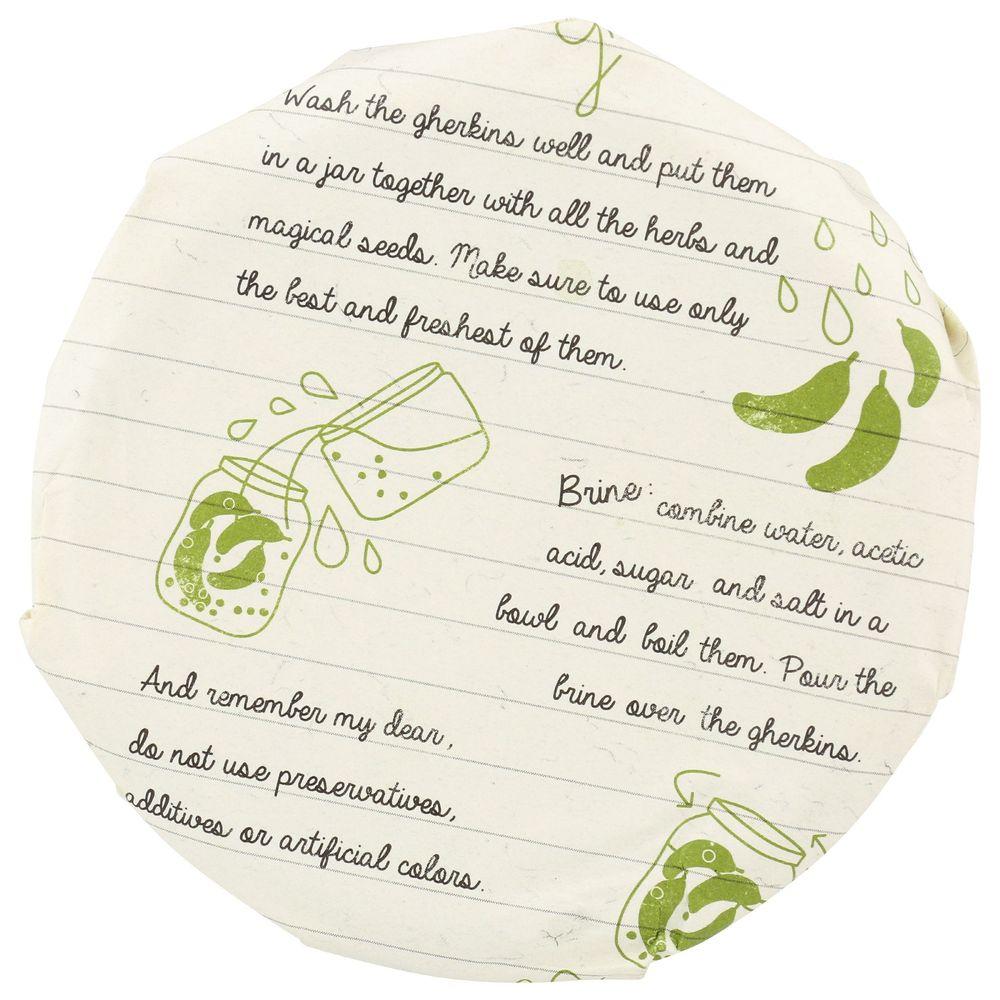 g
Wash the gherkins well and put them
in a jar together with all the herbs and
magical seeds. Make sure to use only
the best and freshest of them.
Brine: combine water, acetic
acid, sugar and salt in a
bowl and boil them. Pour the
brine over the gherkins.
And remember my dear,
do not use preservatives,
additives or artificial colors.